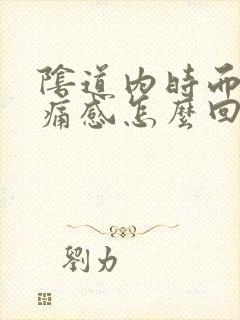 陰道內時而
痛感怎麼回
劉力